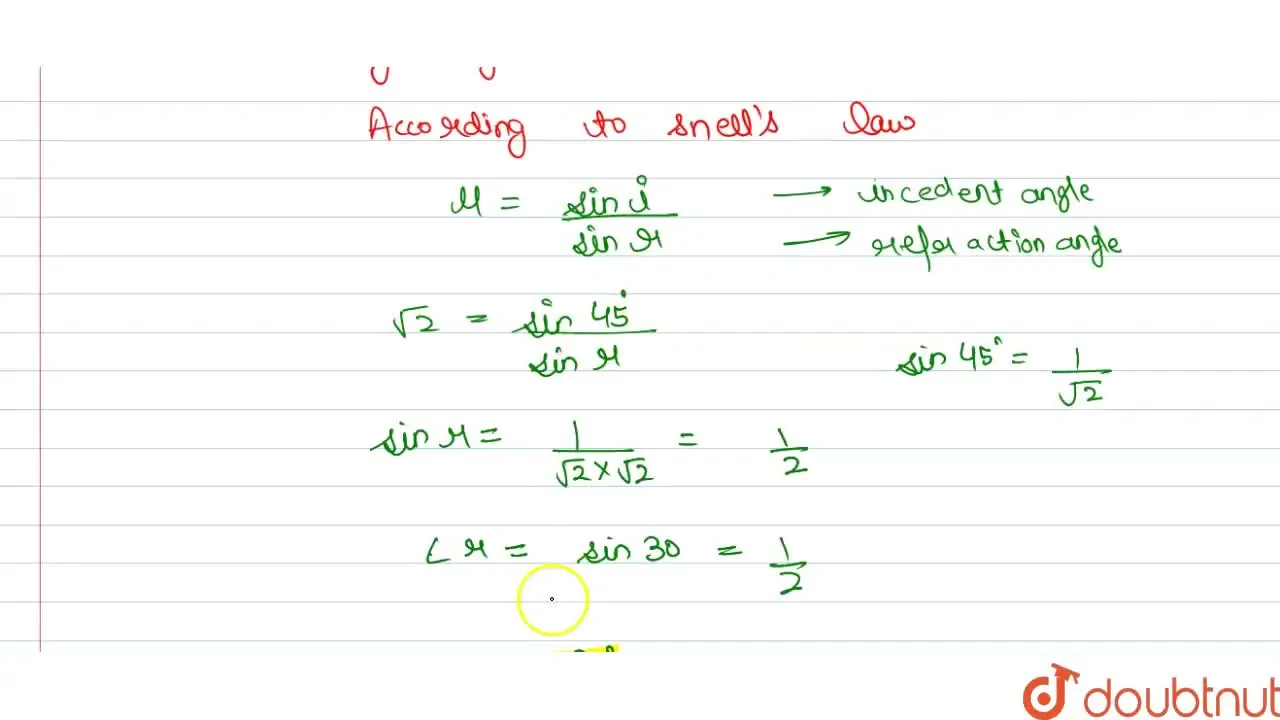 According to snell's law
μ = sin i / sin r → incedent angle
→ refer action angle
√2 = sin 45° / sin r
sin 45° = 1/√2
sin r = 1/√2×√2 = 1/2
∠r = sin 30 = 1/2
doubtnut